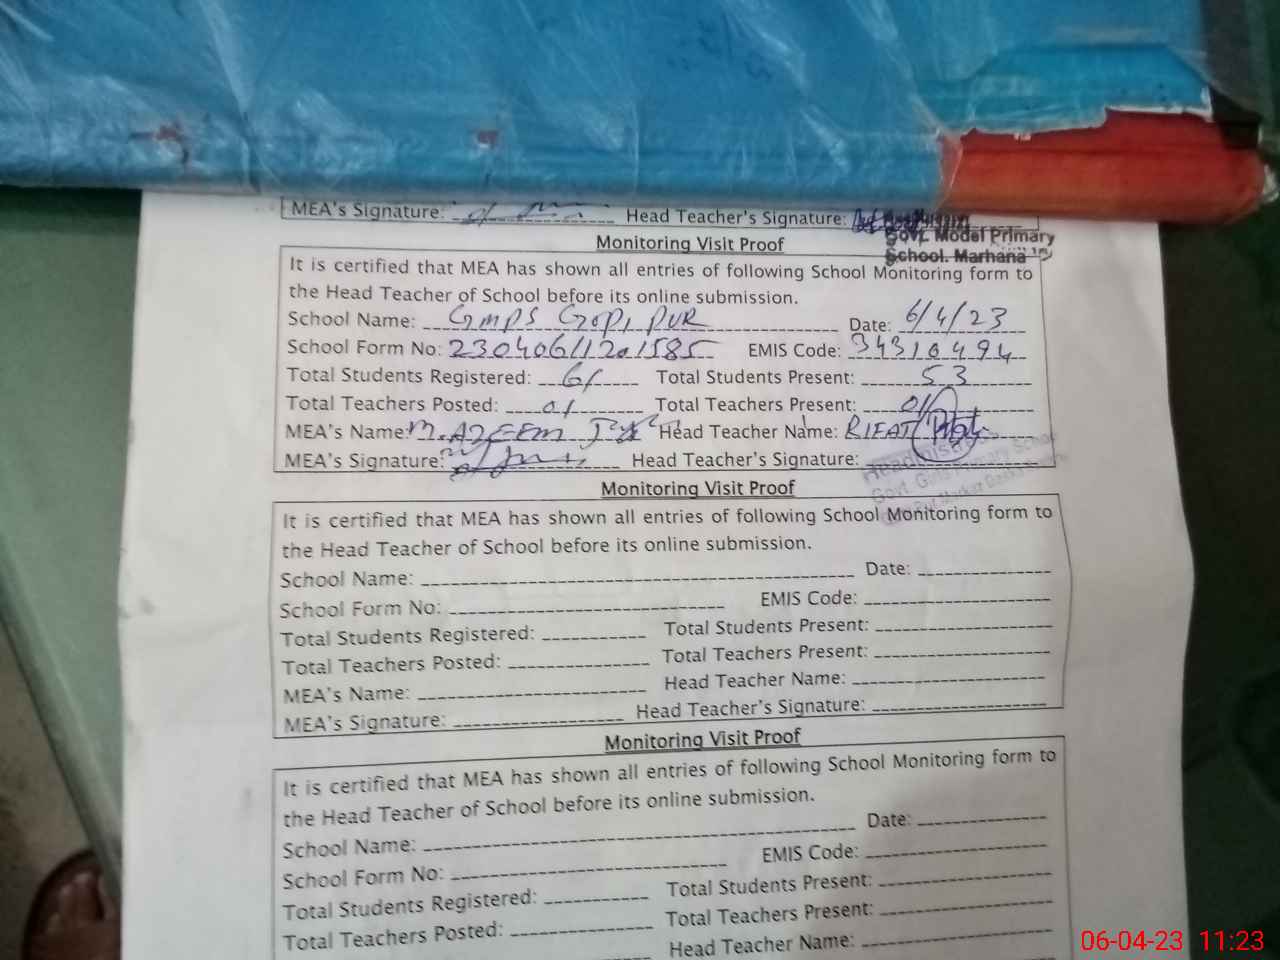 MEA's Signature: Head Teacher's Signature:
Govt. Model Primary
School. Marhana
Monitoring Visit Proof
It is certified that MEA has shown all entries of following School Monitoring form to
the Head Teacher of School before its online submission.
School Name: GMPS GOPI PUR Date: 6/4/23
School Form No: 23040611201585 EMIS Code: 34310494
Total Students Registered: 61 Total Students Present: 53
Total Teachers Posted: 01 Total Teachers Present: 01
MEA's Name: M.AZEEM Head Teacher Name: RIFAT
MEA's Signature: Head Teacher's Signature:
Headmistress
Govt. Girls Primary School
Monitoring Visit Proof
It is certified that MEA has shown all entries of following School Monitoring form to
the Head Teacher of School before its online submission.
School Name: Date:
School Form No: EMIS Code:
Total Students Registered: Total Students Present:
Total Teachers Posted: Total Teachers Present:
MEA's Name: Head Teacher Name:
MEA's Signature: Head Teacher's Signature:
Monitoring Visit Proof
It is certified that MEA has shown all entries of following School Monitoring form to
the Head Teacher of School before its online submission.
School Name: Date:
School Form No: EMIS Code:
Total Students Registered: Total Students Present:
Total Teachers Posted: Total Teachers Present:
Head Teacher Name:
06-04-23 11:23